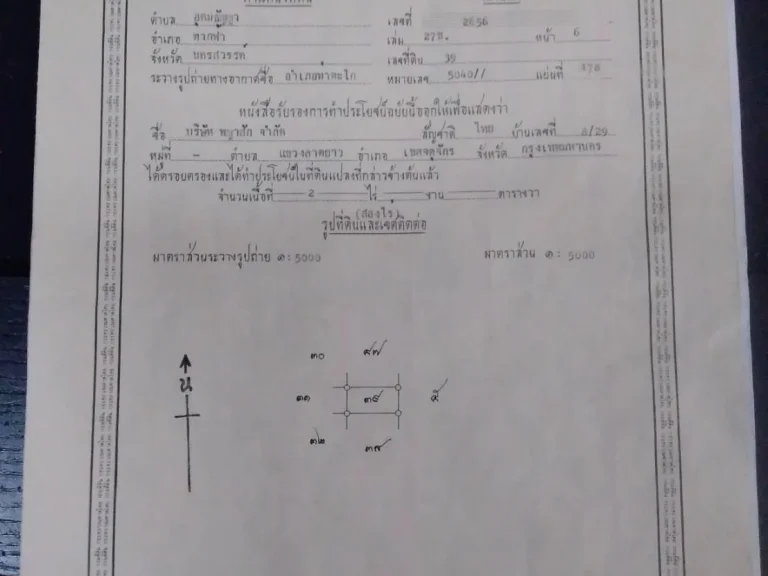 ตำบล อุดมธัญญา เลขที่ 2856
อำเภอ ตากฟ้า เล่ม 27ฃ. หน้า 6
จังหวัด นครสวรรค์ เลขที่ดิน 39
ระวางรูปถ่ายทางอากาศชื่อ อำเภอท่าตะโก หมายเลข 5040// แผ่นที่ 178
หนังสือรับรองการทำประโยชน์ฉบับนี้ออกให้เพื่อแสดงว่า
ชื่อ บริษัท จำกัด สัญชาติ ไทย บ้านเลขที่ 8/29
หมู่ที่ - ตำบล แขวงลาดยาว อำเภอ เขตจตุจักร จังหวัด กรุงเทพมหานคร
ได้ครอบครองและได้ทำประโยชน์ในที่ดินแปลงที่กล่าวข้างต้นแล้ว
จำนวนเนื้อที่ 2 ไร่ งาน ตารางวา
(สองไร่)
รูปที่ดินและเขตติดต่อ
มาตราส่วนระวางรูปถ่าย ๑: 5000 มาตราส่วน ๑: 5000
๓๐ ๔๗
น
๓๑ ๓๙ ๕
๓๒ ๓๘